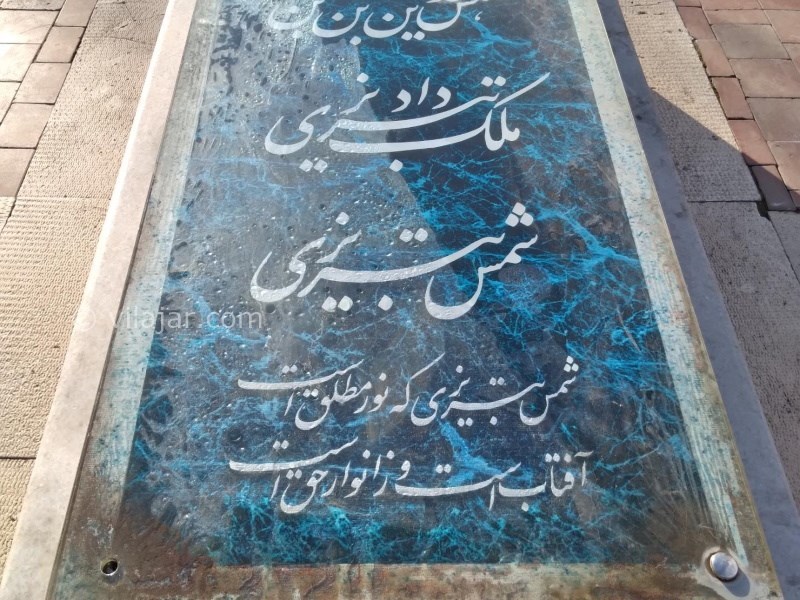 ین بن
ملک داد تبریزی
شمس تبریزی
شمس تبریزی که نور مطلق است
آفتاب است و ز انوار حق است
vilajar.com